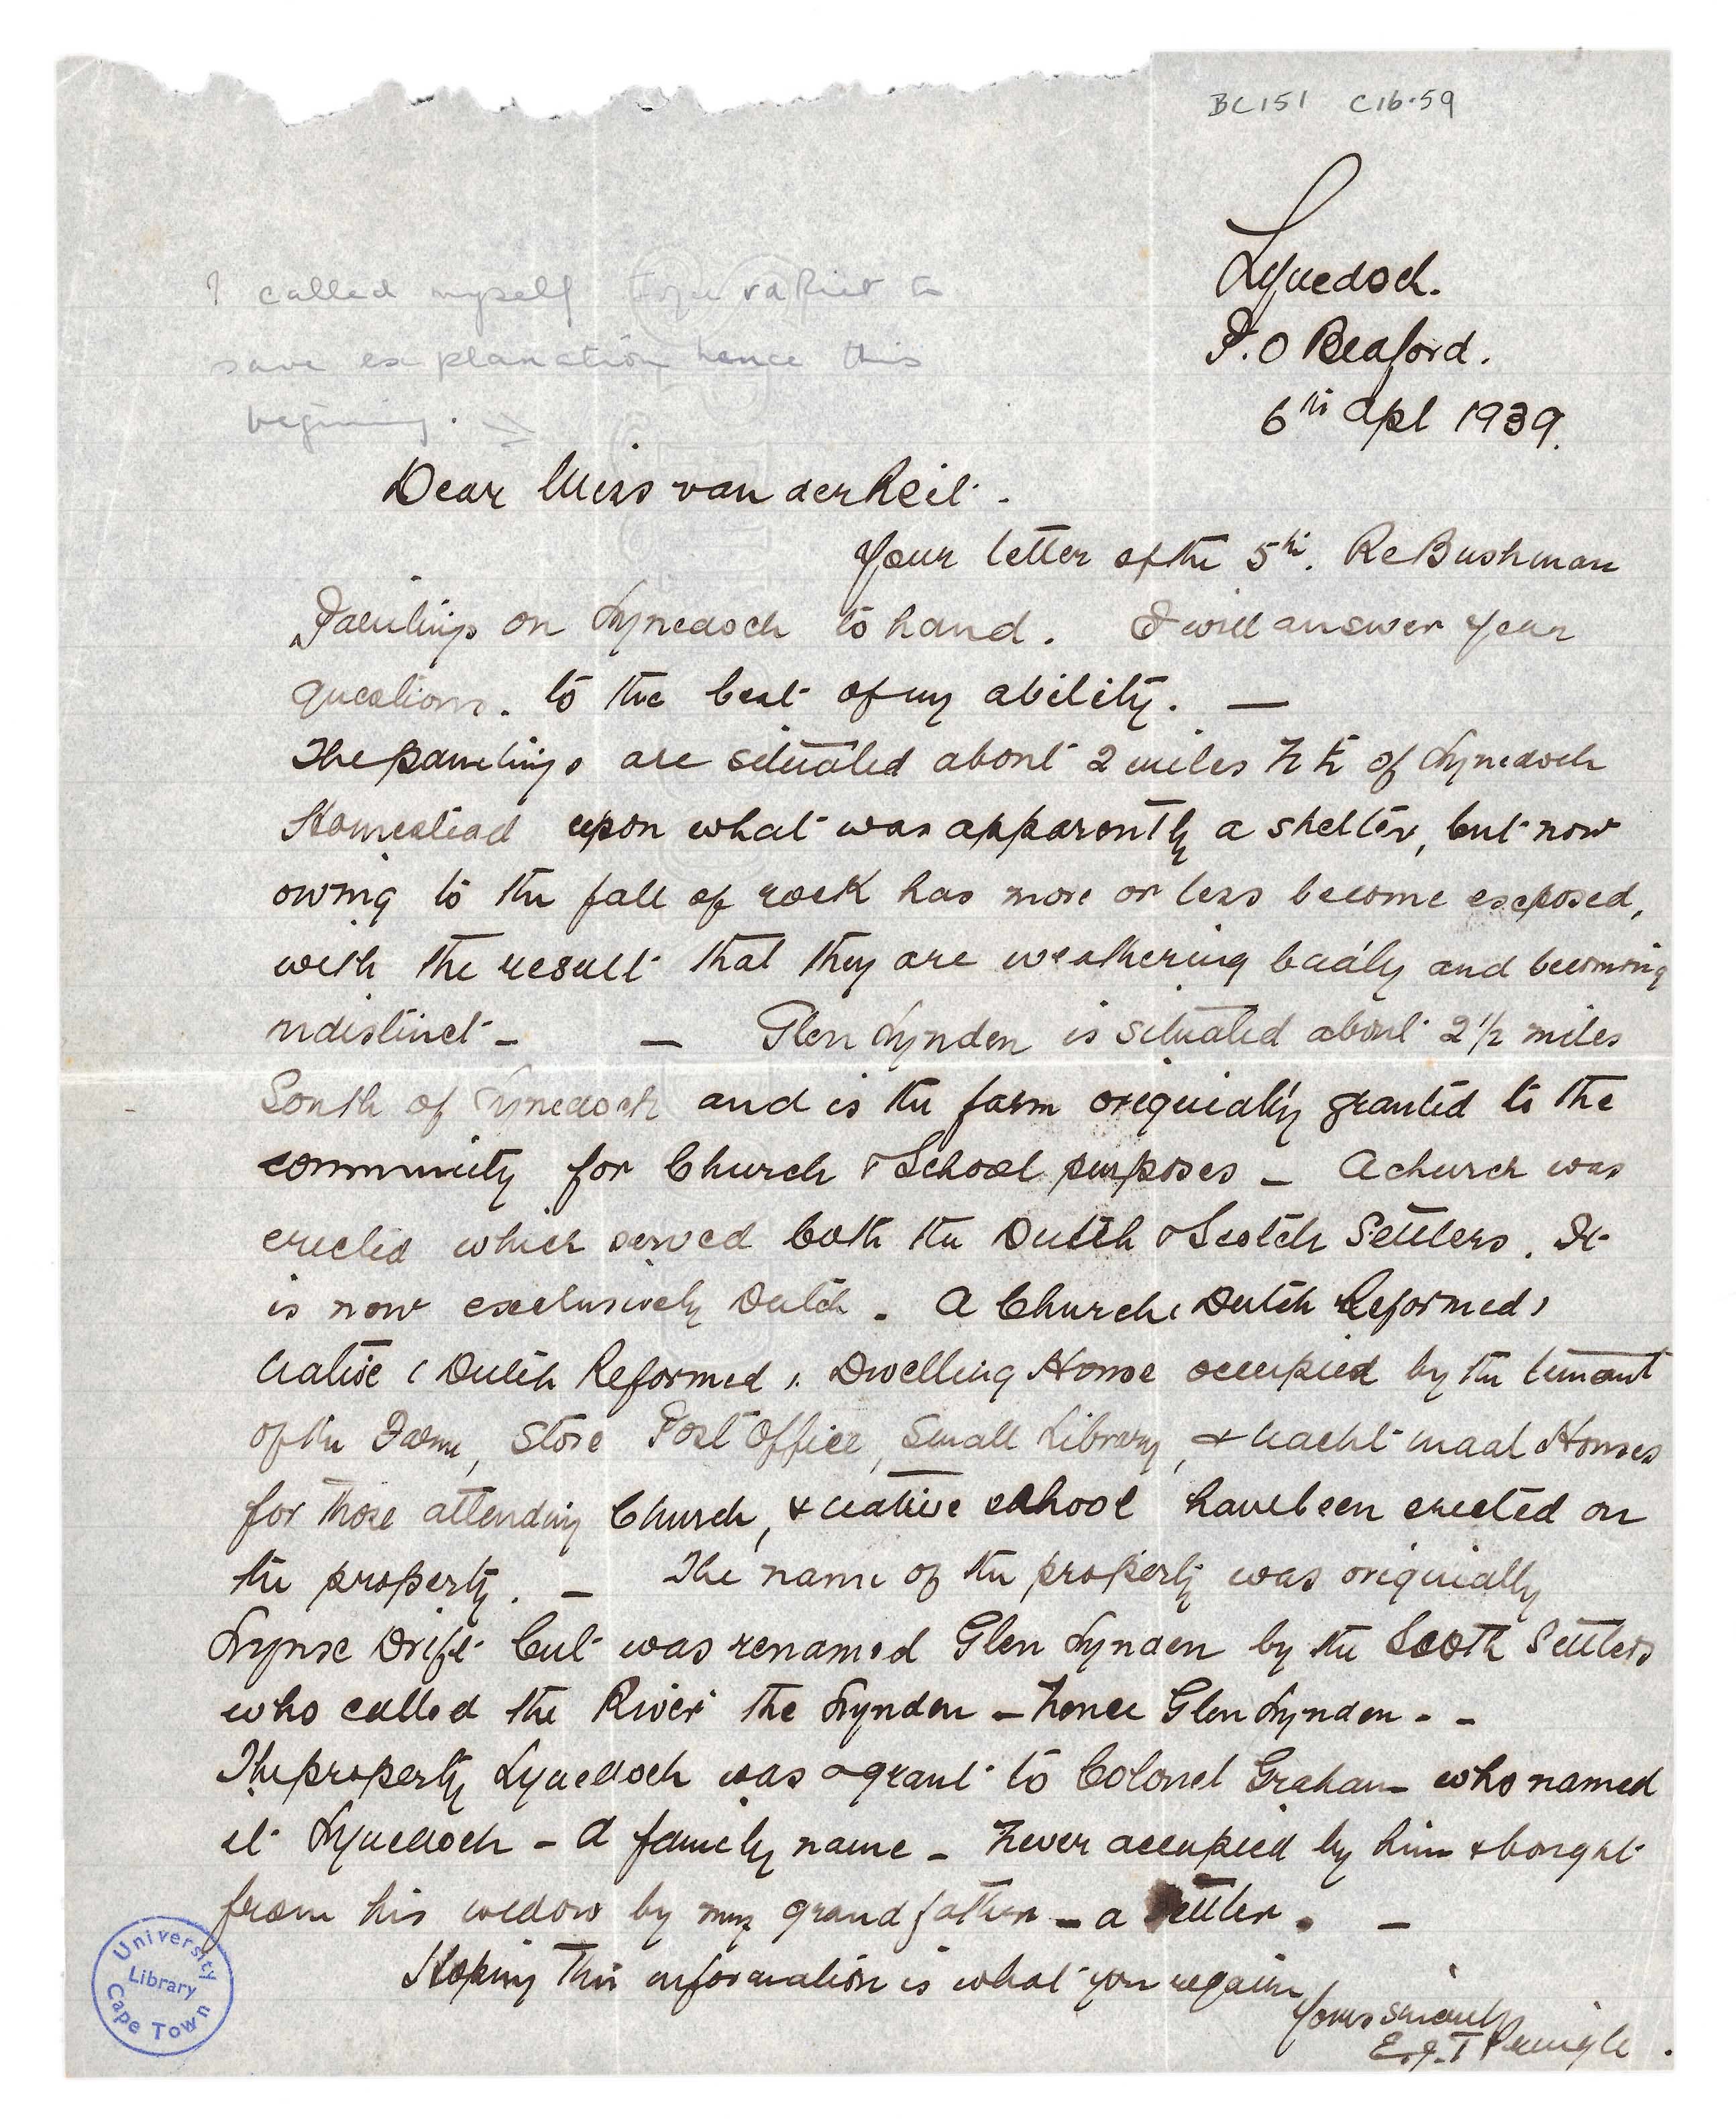 BC151 C16.59
Lynedoch.
P.O Bedford.
6th Apl 1939.
I called myself van Riet to
save explanation hence this
begining.
Dear Miss van der Reit.
Your letter of the 5th. Re Bushman
Paintings on Lynedoch to hand. I will answer your
questions. to the best of my ability. —
The paintings are situated about 2 miles of Lynedoch
Homestead upon what was apparently a shelter, but now
owing to the fall of rock has more or less become exposed,
with the result that they are weathering badly and becoming
indistinct — — Glen Lynden is situated about 2 1/2 miles
South of Lynedoch and is the farm originially granted to the
community for Church & School purposes — A church was
erected which served both the Dutch & Scotch Settlers. It
is now exclusively Dutch. A Church (Dutch Reformed)
Native (Dutch Reformed). Dwelling House occupied by the tenant
of the Farm, Store Post Office, Small Library, & Nachtmaal Houses
for those attending Church, & native school have been erected on
the property. — The name of the property was originially
Lynx Drift but was renamed Glen Lynden by the Scoth Settlers
who called the River the Lynden — hence Glen Lynden - -
The property Lynedoch was a grant to Colonel Graham who named
it Lynedoch — a family name — never occupied by him & bought
from his widow by my grandfather — a settler. —
Hoping this information is what you require
Yours sincerely
E.J.T Pringle.
University
Library
Cape Town